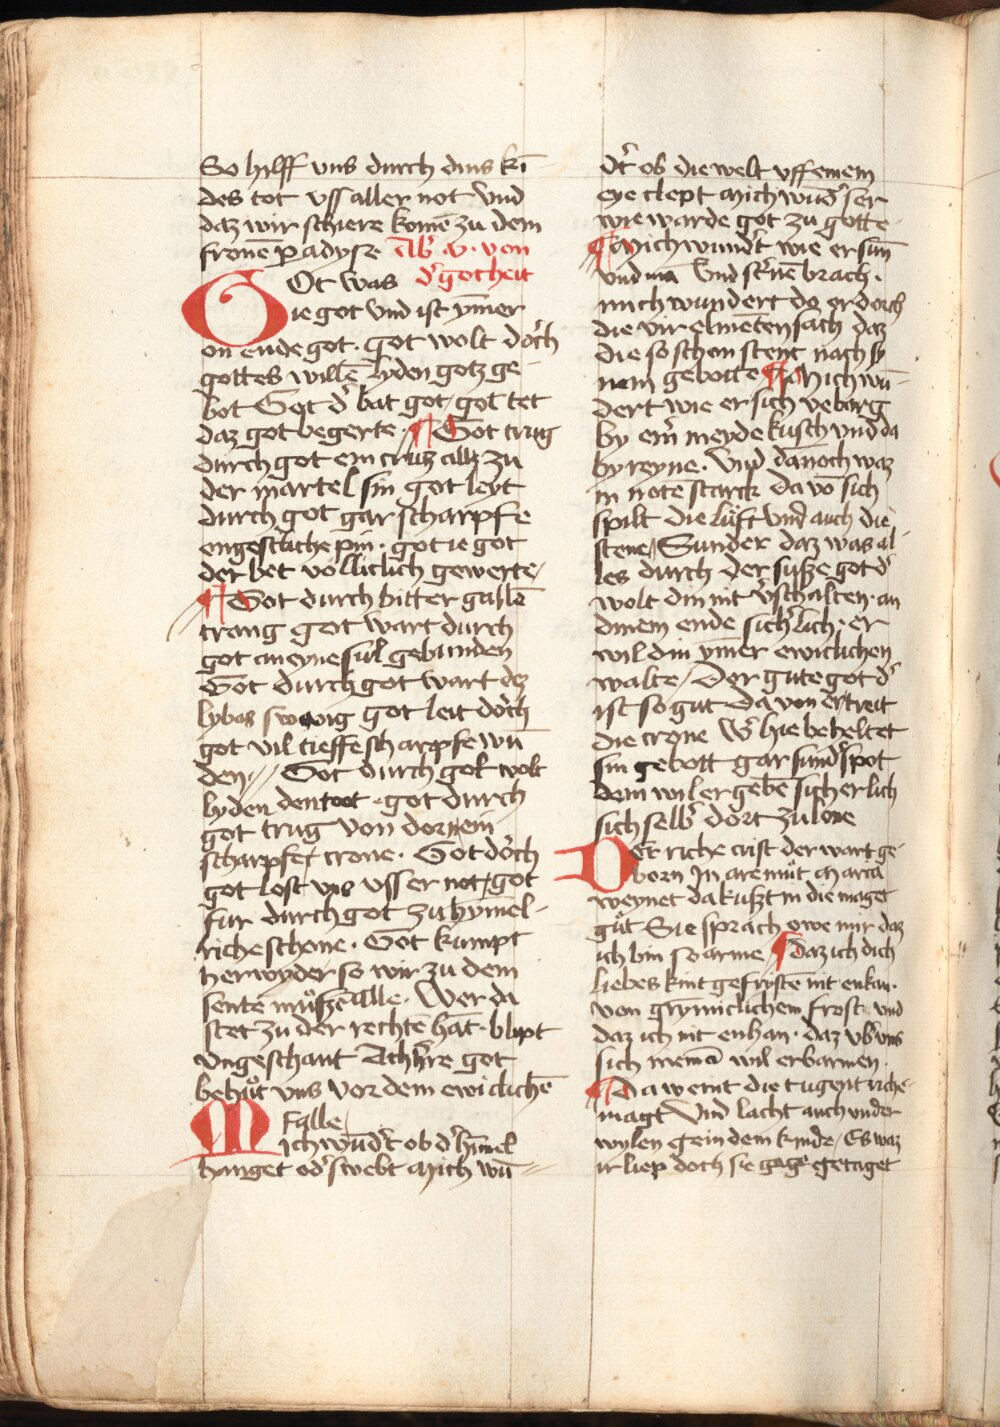 So hilff vns durch dins kī
des tot vss aller not Vnd
daz wir schiere komē zu dem
fronē padyse Ab' v. von
d' gotheit
GOt was
ie got vnd ist ym̄er
on ende got. got wolt do̍ch
gottes willē lyden gotz ge-
bot Got d' bat got / got tet
daz got begerte. ¶ Got trug
durch got ein crutz allz zu
der martel sin got leyt
durch got gar scharpfe
engestliche pin. got ie got
der bet völliclich gewerte /
¶ Got durch bitter gallē
trang got wart durch
got an eyne sul gebunden
Got durch got wart dez
lybes sweyig got leit do̍ch
got vil tieffe scharpfe wū
den // Got durch got wolt
lyden den toot. got durch
got trug von dornein
scharpfer crone. Got do̍ch
got lost vns vsser not / got
fur durch got zu hymel-
riche schone. Got kumpt
herwyder so wir zu dem
sente müszē alle. Wer da
stet zu der rechtē hāt. blypt
vngeschant Ach h're got
behüt vns vor dem ewiclichē
Falle /
MIch wūd't ob d' hīmel
hanget od' swebt Mich wū=
d't ob die welt vff einem
eye clept Mich wūd' ser
wie warde got zu gotte.
¶ Mich wund't wie er sun̄
vnd ma Vnd st'nē brach.
mich wundert do er dorch
die vir elmēten sach daz
die so schon stent nach sy
nem gebotte ¶ Mich wū-
dert wie er sich v'barg
by ein' meyde kusch vnd da
by reyne. Vnd dānoch waz
in notē starck da vō sich
spilt die lüft vnd auch die
stene / Sunder daz was al-
les durch der susze got d'
wolt din nit v'schalten. an
dinem ende sich'lich. er
wil din ym̄er ewiclichen
walte / Der gute got d'
ist so gut da von er treit
die crone W' hie beheltet
sin gebott gar sund' spot
dem wil er gebē sicherlich
sich selb' dort zu lone
DEr riche crist der wart ge-
born In aremüt Maria
weynet da kuszt in die maget
güt Sie sprach owe mir daz
ich bin so arme / ¶ daz ich dich
liebes kint gefristē nit enkan.
von grymiclichem frost vnd
daz ich nit enhan. daz vb' vns
sich niemā wil erbarmen.
¶ Da weint die tugent riche
magt Vnd lacht auch vnder
wylen gein dem kinde / Es waz
ir liep doch sie getaget